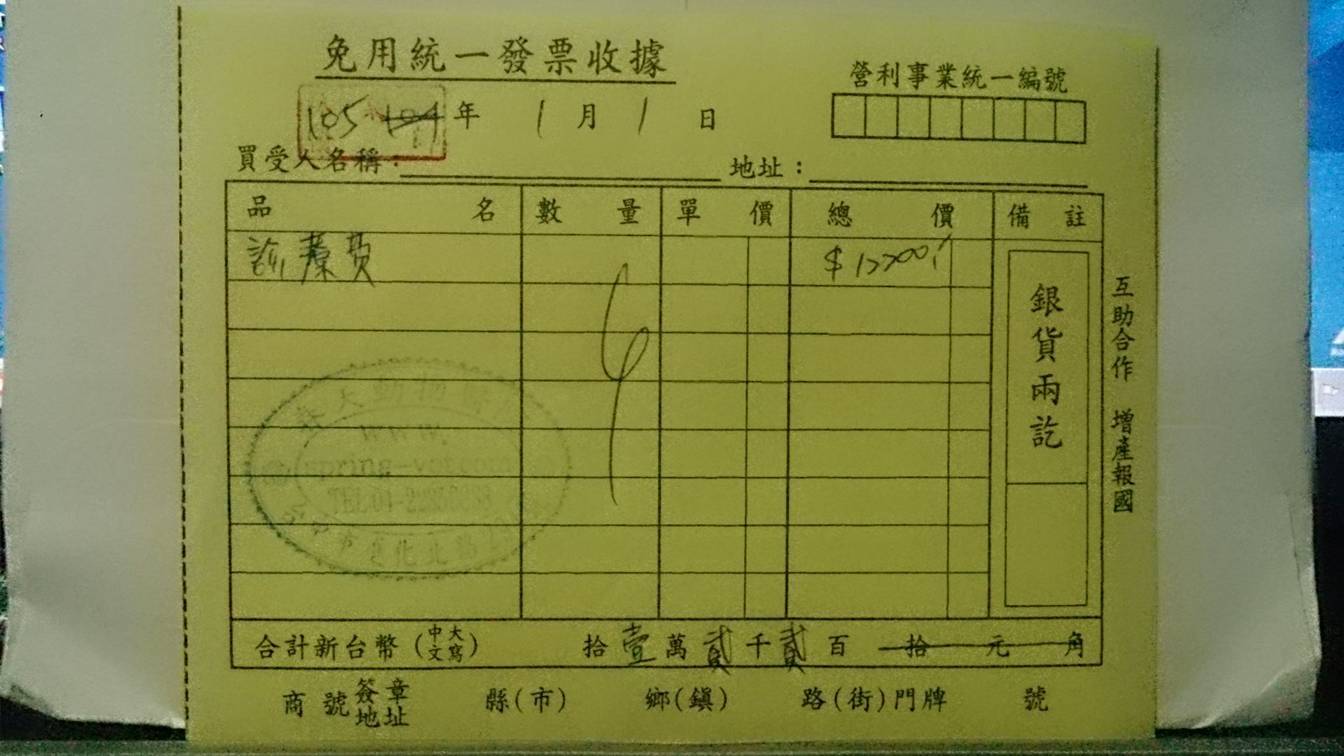 免用統一發票收據
營利事業統一編號
105 104 年 1 月 1 日
買受人名稱： 地址：
品名 數量 單價 總價 備註
診療費 $12200.-
銀貨兩訖
互助合作 增產報國
動物
www.
spring-vet.com
TEL:04-22
市 北路
合計新台幣(中文大寫) 拾壹萬貳千貳百 拾 元 角
商號簽章地址 縣(市) 鄉(鎮) 路(街)門牌 號